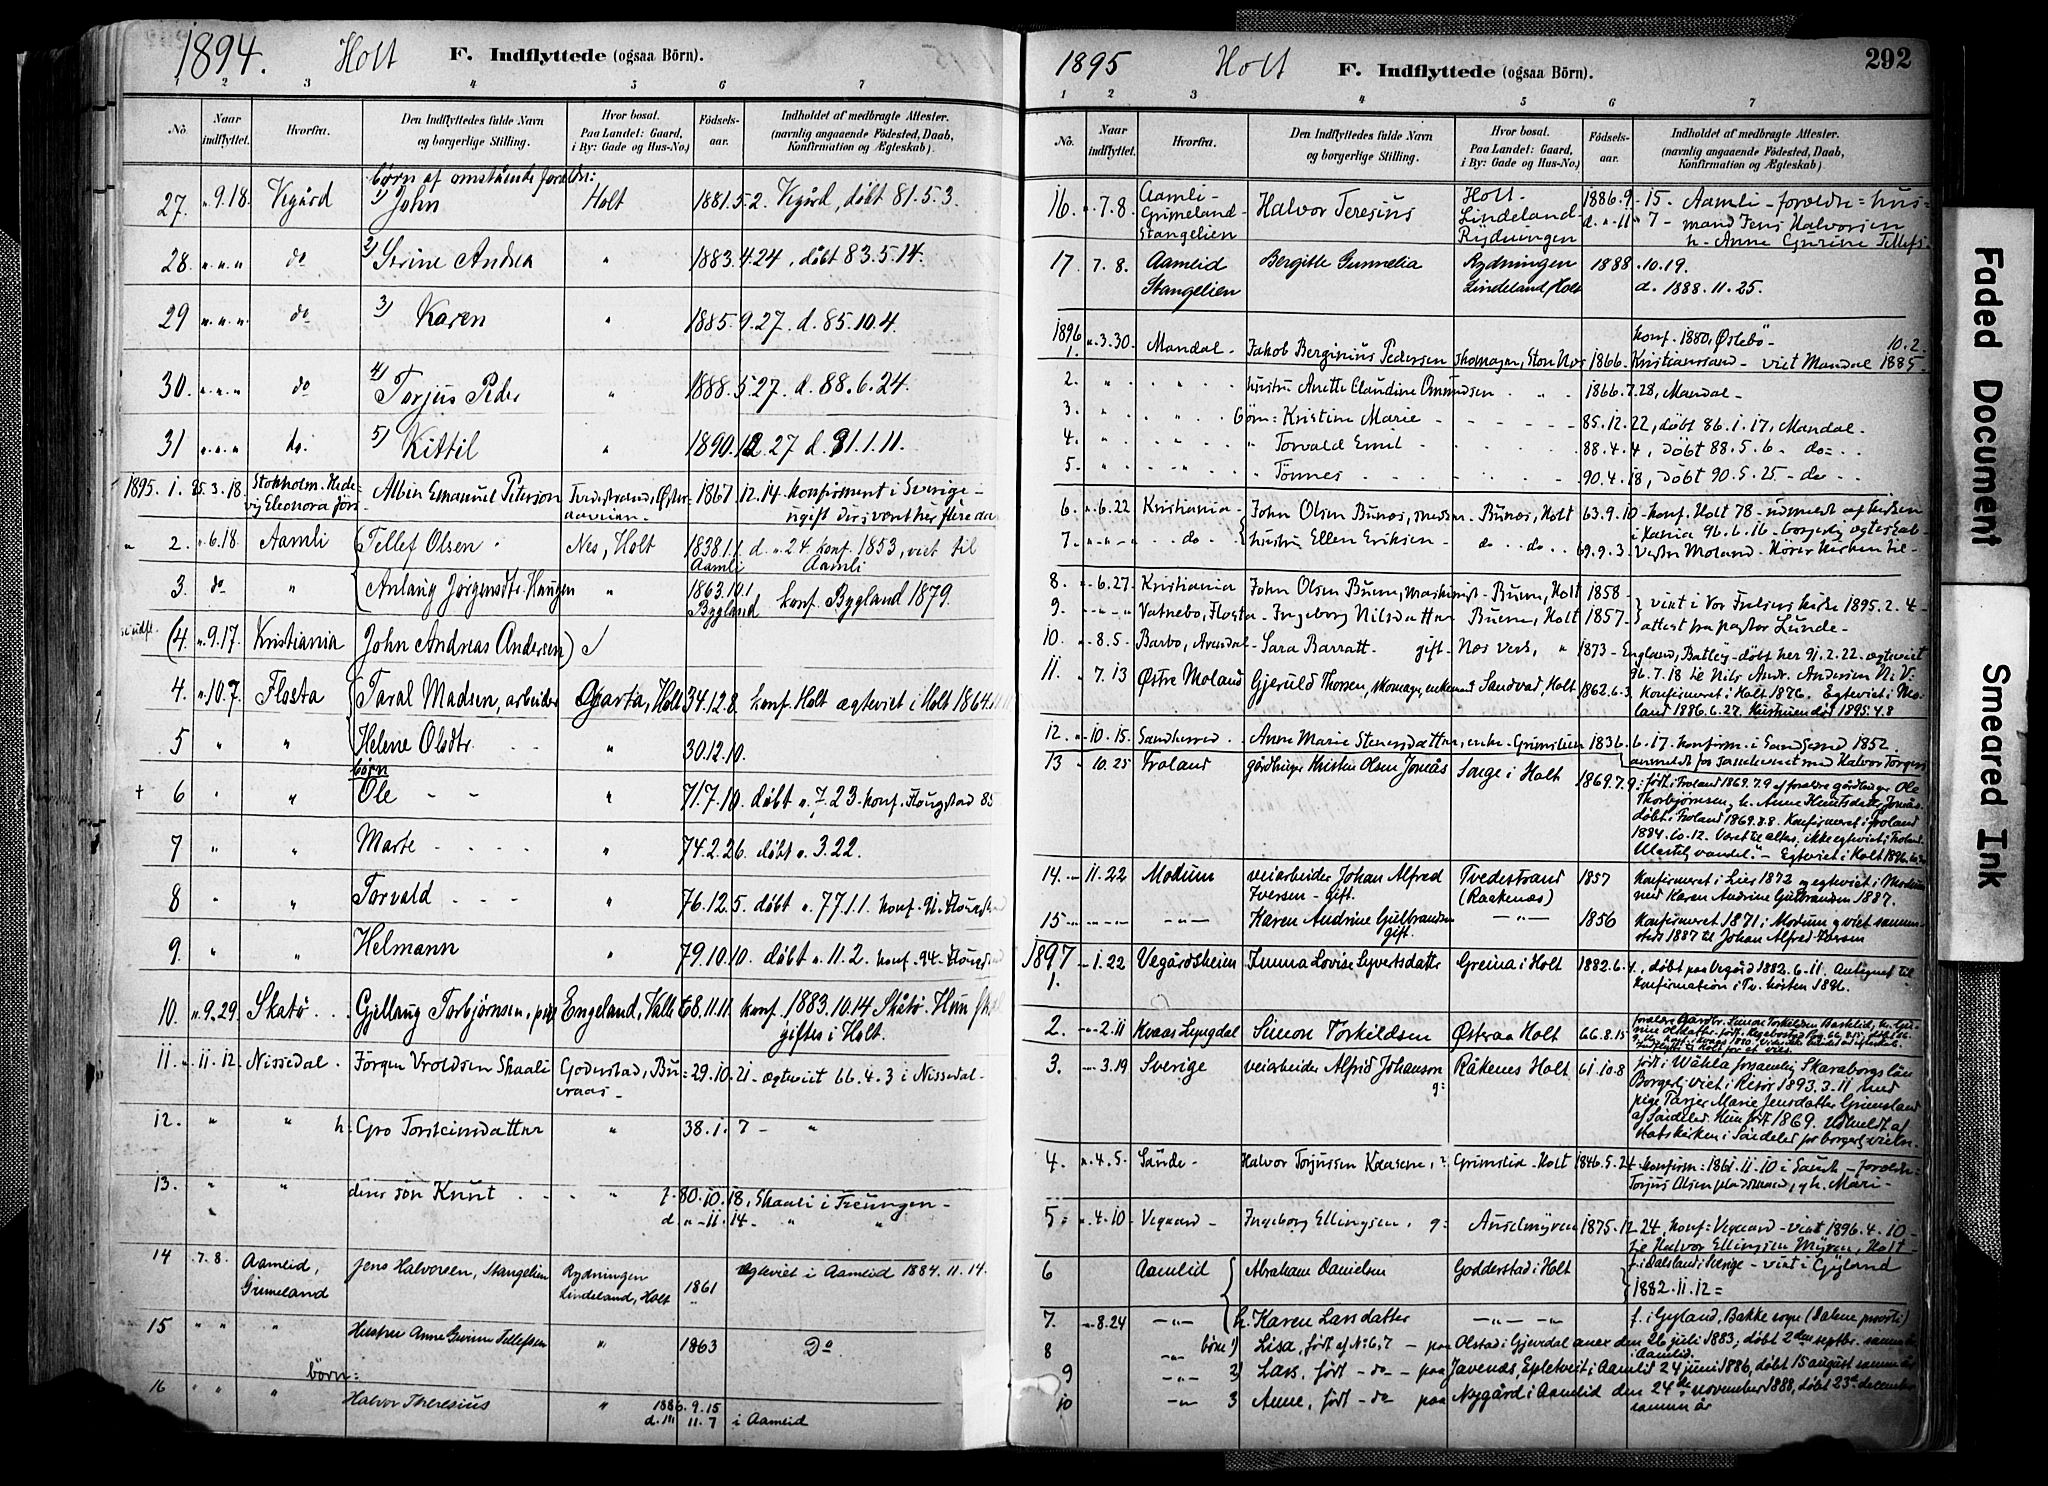 1894. Holt F. Indflyttede (ogsaa Börn).
1 2 3 4 5 6 7
No. Naar indflyttet. Hvorfra. Den Indflyttedes fulde Navn og borgerlige Stilling. Hvor bosat. Paa Landet: Gaard, i By: Gade og Hus-No.) Födsels-aar. Indholdet af medbragte Attester. (navnlig angaaende Födested, Daab, Konfirmation og Ægteskab).
börn af omstående foreldre:
27. " 9.18. Vegård 1) John Holt 1881.5.2. Vegård, döbt 81.5.3.
28. " " " do 2) Serine Andrea " 1883.4.24, döbt 83.5.14.
29 " " " do 3) Karen " 1885.9.27. d. 85.10.4.
30. " " " do 4) Torjus Peder " 1888.5.27. d. 88.6.24.
31 " " " do. 5) Kittil " 1890.12.27 d. 91.1.11.
1895. 1. 95.3.18. Stokholm. Hede-
vig Eleonora Albin Emanuel Peterson Tvedestrand, Öster- 1867. 12.14 konfirment i Sverige-
ugift
" 2. " 6.18. Aamli Tellef Olsen Nes, Holt 1838.1.1. d. " 24 konf. 1853, viet til
Aamli Aamli
3. do " Anlaug Jörgensdtr. Haugen " 1863.10.1 konf. Bygland 1879.
Bygland
(4. " 9.17. Kristiania John Andreas Andersen)
4. " 10.7. Flosta Taral Madsen, arbeider Ogarta, Holt 34.12.8. konf. Holt ægteviet i Holt 1864.
5 " " Helene Olsdtr. " 30.12.10.
börn
+ 6 " " Ole - - " 71.7.10. döbt " 7.23. konf. 85
7 " " Marte - - - - " 74.2.26. döbt " 3.22.
8 " " Torvald - - - " 76.12.5. döbt " 77.1.1. konf. 91.
9 " " Helmann " 79.10.10. döbt " 11.2. konf. 94.
10. " 9.29 Skatö . . Gjellaug Torbjörnsen, pige Engeland, Valle 68.11.11. konf. 1883.10.14 Skåtö. Hun skal
giftes i Holt.
11. " 11.12. Nissedal. Jörgen Vroldsen Skaali Goderstad, Bu-
raas- 29.10.21- ægteviet 66.4.3 i Nissedal.
12. " " h: Gro Torsteinsdatter " 38.1.7 - "
13. " " deres sön Knut " f. 80.10.18, Skaali i Treungen-
" d. " - 11.14- " "
14 " 7.8. Aamlid, Jens Halvorsen, Stangelien Rydningen 1861 Ægteviet i Aamlid 1884.11.14.
Grimeland Lindeland, Holt
15 " " " Hustru Anne Gurine Tellefsen " 1863 Do
börn:
16 " " " Halvor Theresius " 1886.9.15
d. " 11.7 i Aamlid
1895 Holt F. Indflyttede (ogsaa Börn). 292
1 2 3 4 5 6 7
No. Naar indflyttet. Hvorfra. Den Indflyttedes fulde Navn og borgerlige Stilling. Hvor bosat. Paa Landet: Gaard, i By: Gade og Hus-No.) Födsels-aar. Indholdet af medbragte Attester. (navnlig angaaende Födested, Daab, Konfirmation og Ægteskab).
16. " 7.8. Aamli- Halvor Teresius Holt- 1886.9.15. Aamli - foreldre = hus=
Grimeland- Lindeland- d. " - 11 " 7 - mand Jens Halvorsen
Stangelien Rydningen h. Anne Gurine Tellefs-
17. " 7.8. Aamlid Bergitte Gunnelia Rydningen 1888.10.19.
Stangelien Lindeland, Holt d. 1888.11.25.
1896 konf. 1880, Öslebö- 10.2.
1. " 3.30. Mandal - Jakob Berginius Pedersen skomager, 1866. Kristianssand - viet Mandal 1885.
2. " " " hustru Anette Claudine Osmundsen " 1866.7.28, Mandal-
3. " " " börn: Kristine Marie - - - - 85.12.22, döbt 86.1.17, Mandal-
4. " " " " Torvald Emil - - - 88.4.4, döbt 88.5.6 - do= . .
5. " " " " Tönnes - - - 90.4.18, döbt 90.5.25 - do - .
6. " 6.22 Kristiania- John Olsen Bunæs, Bunæs, Holt 63.9.10 - konf. Holt 78 - udmeldt af kirken
7. " - " - " . . do . . hustru Ellen Eriksen - do . . do . 69.9.3. i Xania 96.6.16 - borgerlig ægteskab
Vestre Moland
8. " 6.27. Kristiania John Olsen Buene, maskinist - Buene, Holt 1858 -
9. " - " - " Vatnebo, Flosta - Ingeborg Nilsdatter Buene, Holt 1857 - viet i Vor Frelsers kirke 1895.2.4-
attest fra pastor Lunde-
10. " 8.5. Barbo, Arendal - Sara Barratt - gift - Næs verk, " 1873 - England, Batley - döbt her 91.2.22. ægteviet
96.7.18 til Nils Andr. Andersen N: V:
11. " 7.13 Østre Moland Gjeruld Thorsen, skomager, enkemand Sandvad, Holt 1862.6.3. Konfirmeret i Holt 1876. Egteviet i Mo-
land 1886.6.27. Hustruen död 1895.4.8
12. " 10.15. Sandherred. Anne Marie Stensdatter, enke - Grimslien 1836.6.17. konfirm. i 1852.
13 " 10.25 Froland gårdbruger Kristen Olsen Jomås Songe i Holt 1869.7.9: född i Froland 1869.7.9 af foreldre gårdbruger Ole
Thorbjörnsen, h. Anne Knutsdatter Jomås.
döbt i Froland 1869.8.8. Konfirmeret i Froland
1884.10.12. Været til alters, ikke egteviet i Froland.
Ulastelig vandel." - Egteviet i Holt 1896.
14. - 11.22 Modum veiarbeider Johan Alfred Tvedestrand 1857 Konfirmeret i Lier 1872 og egteviet i Modum
Iversen - gift. (Raakenæs) med Karen Andrine Gulbrandsen 1887.
15 - - - - " - Karen Andrine Gulbrandsen - " - 1856 Konfirmeret 1871 i Modum og viet sammen-
gift. steds 1887 til Johan Alfred Iversen
1897
1. - 1.22 Vegårdsheien Emma Lovise Syvertsdatter Greina i Holt 1882.6.4., döbt paa Vegård 1882.6.11. Antegnet til
konfirmation i Tv. hösten 1896.
2. - 2.11 Kvaas Lyngdal Simon Torkildsen Østeraa Holt 66.8.15
3. - 3.19 Sverige veiarbeider Alfred Johanson g: Råkenes Holt 61.10.8 född i Wåhla forsamling Skaraborgs län
Borgerlig viet i Risör 1893.3.11 med
pige Tarjer Marie Jensdatter Grimsland
af Söndeled. Hun född 1869. Udmeldt af
statskirken i Söndeled for borgerlig vielse.
4. " 4.5. Sande- Halvor Torjussen Kaasene, Grimslid - Holt 1846.5.24 - konfirm: 1861.11.10 i - foreldre:
Torjus Olsen pladsmand, og h. Mari-
5 = " 4.10 - Vegaard - Ingeborg Ellingsen. g: Auselmyren 1875.12.24. konf: Vegaard - viet 1896.4.10-
til Halvor Ellingsen Myren, Holt-
6 Aamlid Abraham Danielsen Godderstad i Holt f. i Dalsland i Sverige - viet i Gyland
1882.11.12=
7. - 8.24 - " - h. Karen Larsdatter - " - " - f. i Gyland, Bakke sogn
8 - " - börn 1) Lisa, född af N: 6, 7 - paa Olstad i Gjerdal den 26 juli 1883, döbt 2den septbr. samme år
i Aamlid.
9 - " - 2) Lars, född - do - paa Javenæs, Epletveit i Aamlid 24 juni 1886, döbt 15 august samme år
10 - " - 3 Anne, född - do paa Nygård i Aamlid den 24de november 1888, döbt 23d december
samme år
Faded Document
Smeared Ink